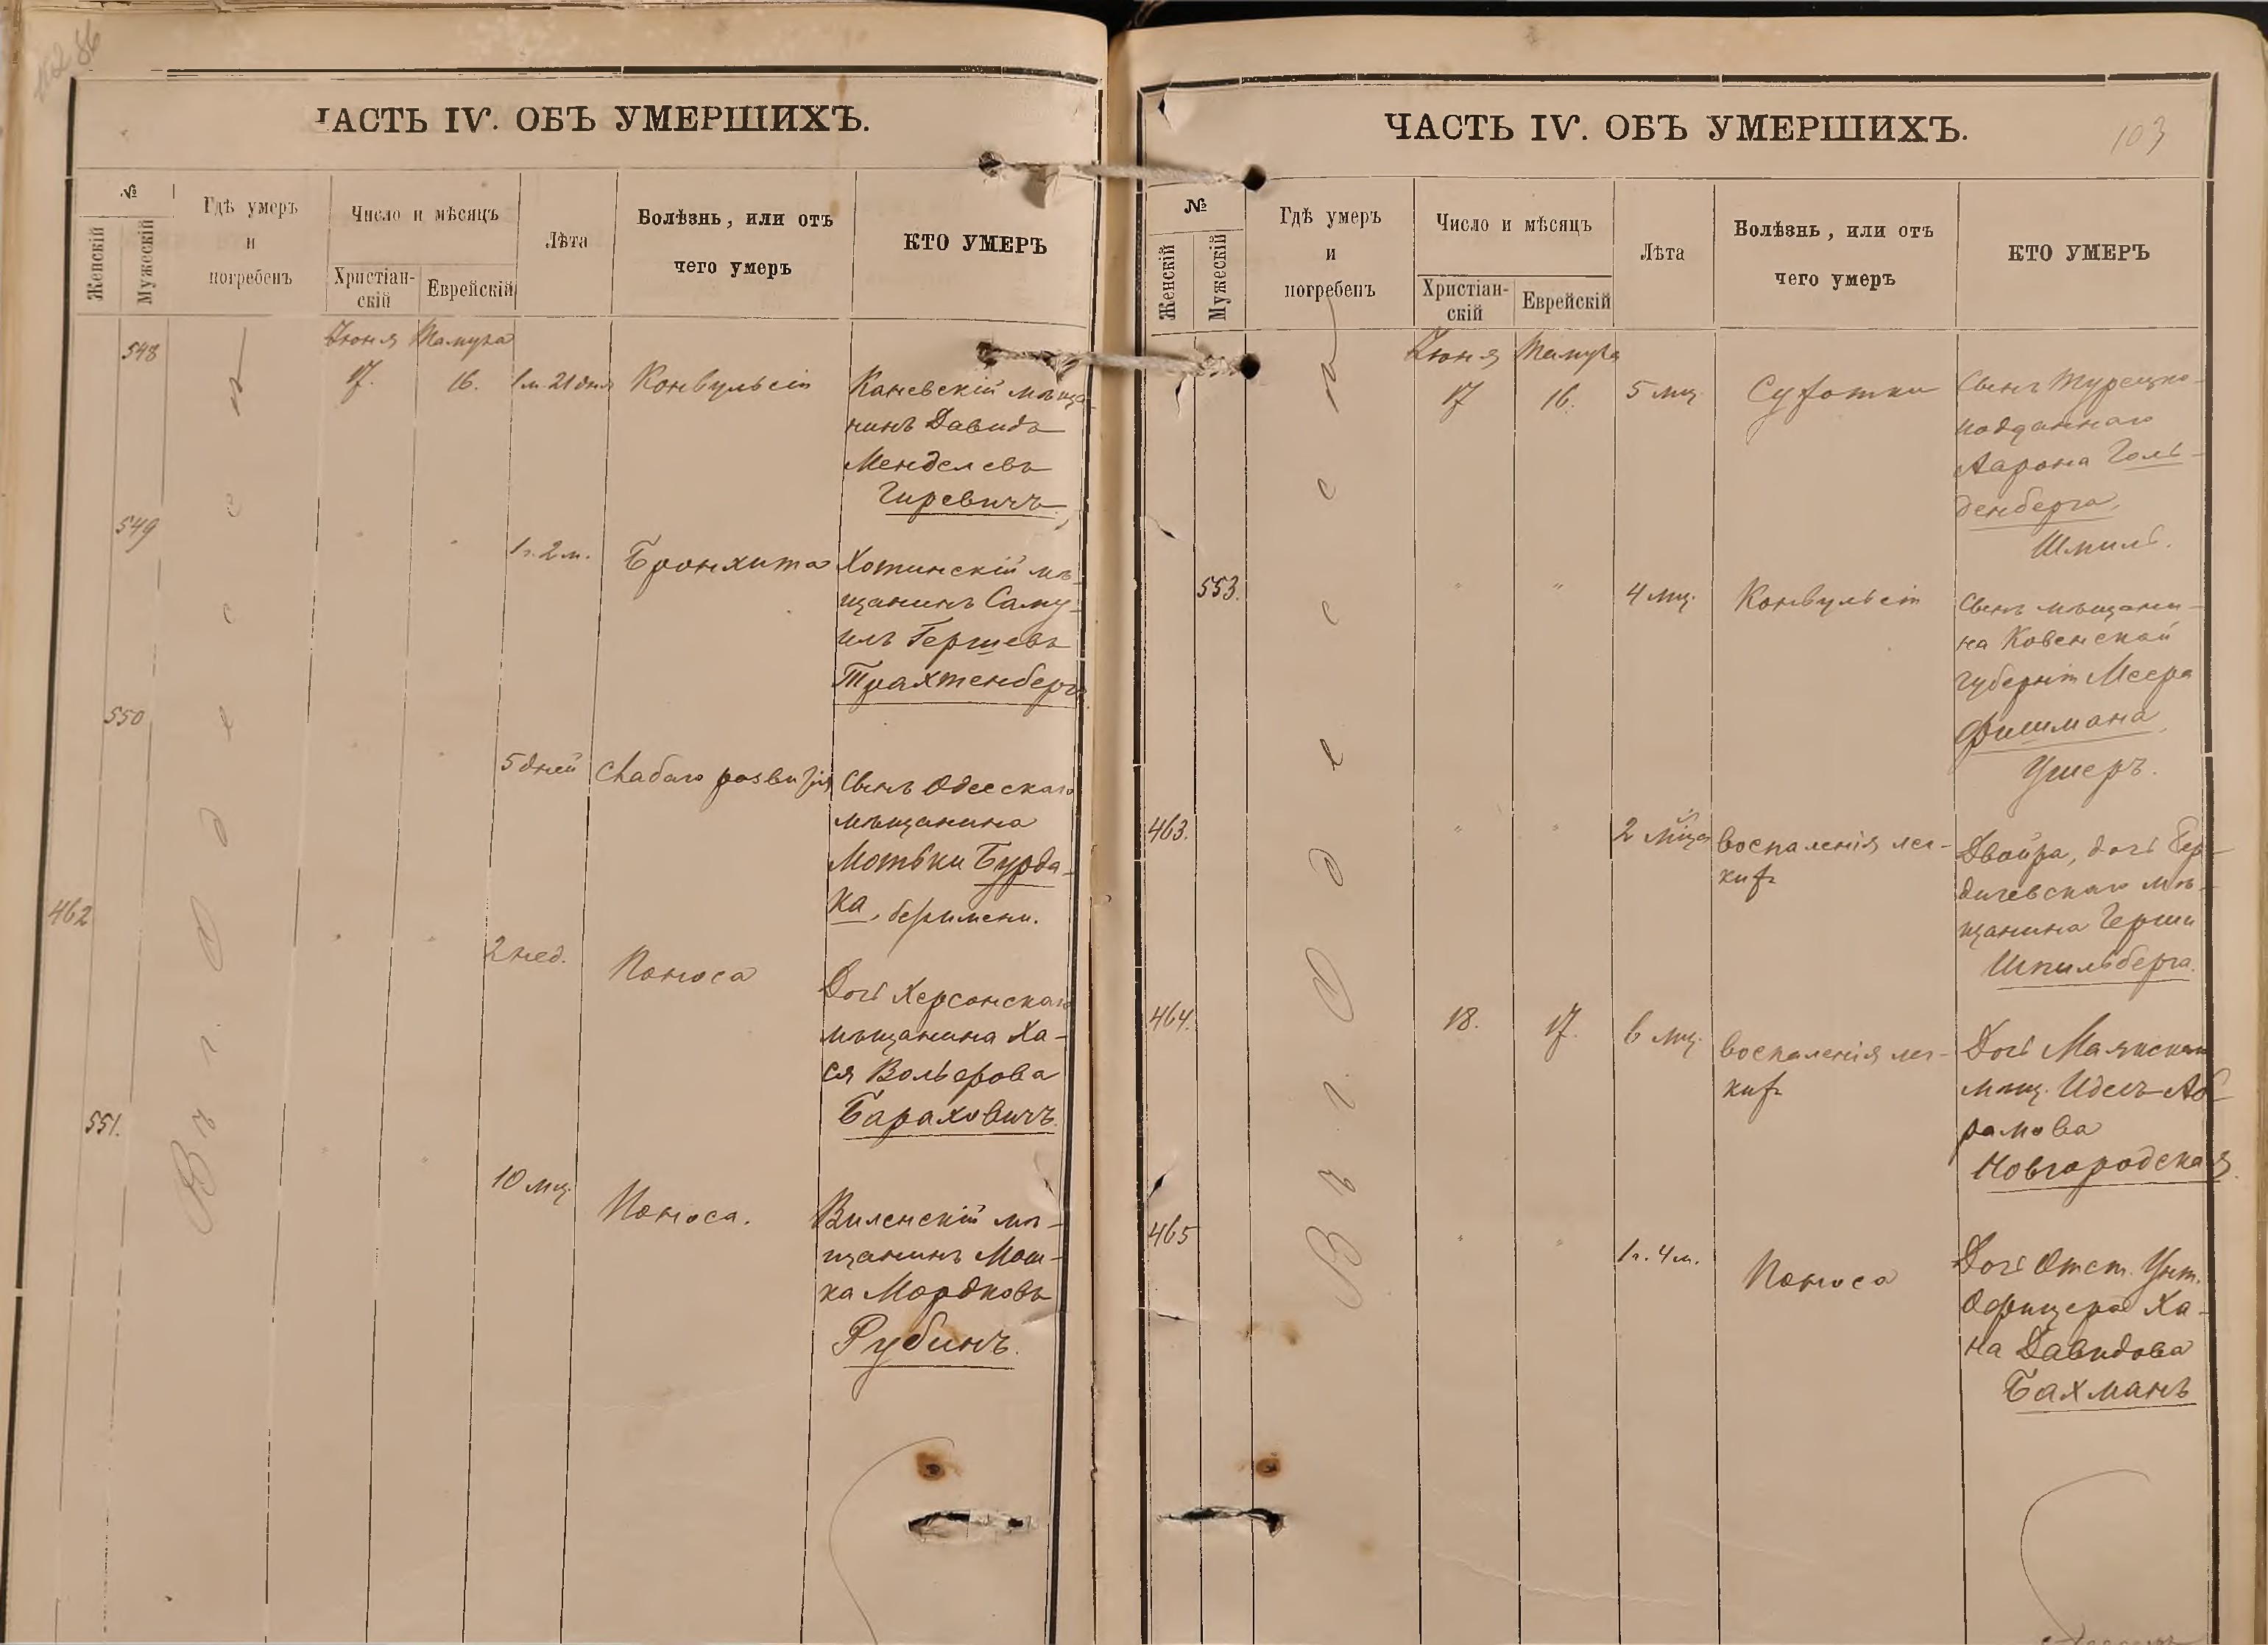 ЧАСТЬ IV. ОБЪ УМЕРШИХЪ.
№
Женскій
Мужескій
Гдѣ умеръ
и
погребенъ
Число и мѣсяцъ
Христіан-
скій
Еврейскій
Лѣта
Болѣзнь, или отъ
чего умеръ
КТО УМЕРЪ
Въ г. Одессѣ
Іюня Тамуза
548
17. 16. 1 м. 21 дня Конвульсіи
Каневскій мѣща-
нинъ Давидъ
Менделевъ
Гиревичъ.
549
" " 1 г. 2 м. Бронхита
Хотинскій мѣ-
щанинъ Саму-
илъ Гершевъ
Трахтенбергъ
550
" " 5 дней Слабаго развитія
Сынъ Одесскаго
мѣщанина
Мотьки Бурда-
ка, безъимени.
462
" " 2 нед. Поноса
Дочь Херсонскаго
мѣщанина Ха-
ся Вольфова
Бараховичъ.
551.
" " 10 мц. Поноса.
Виленскій мѣ-
щанинъ Мош-
ка Мордковъ
Рубинъ.
ЧАСТЬ IV. ОБЪ УМЕРШИХЪ.
103
№
Женскій
Мужескій
Гдѣ умеръ
и
погребенъ
Число и мѣсяцъ
Христіан-
скій
Еврейскій
Лѣта
Болѣзнь, или отъ
чего умеръ
КТО УМЕРЪ
Въ г. Одессѣ
Іюня Тамуза
17 16. 5 мц. Сухотки
Сынъ Турецко-
подданнаго
Аарона Голь-
денберга,
Шмиль.
553.
" " 4 мц. Конвульсіи
Сынъ мѣщани-
на Ковенской
губерніи Меера
Фишмана,
Ушеръ.
463.
" " 2 мѣца воспаленія лег-
кихъ
Двойра, дочь Бер-
дичевскаго мѣ-
щанина Герша
Шпильберга.
464.
18. 17. 6 мц. воспаленія лег-
кихъ
Дочь Маякскаго
мѣщ. Идесъ Аб-
рамова
Новгородская.
465
" " 1 г. 4 м. Поноса
Дочь Отст. Унт.
Офицера Ха-
на Давидова
Бахманъ